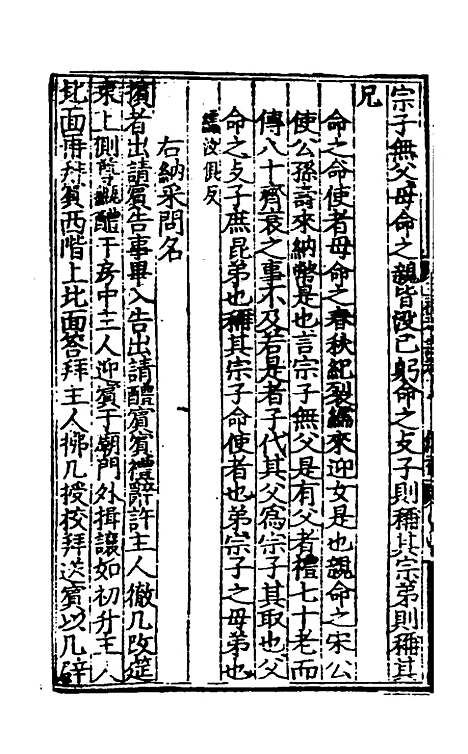 宗子無父母命之親皆没已躬命之支子則稱其宗弟則稱其
兄
命之命使者母命之春秋紀裂繻來迎女是也親命之宋公
使公孫壽來納幣是也言宗子無父是有父者禮七十老而
傳八十齊衰之事不及若是者子代其父爲宗子其取也父
命之支子庶昆弟也稱其宗子命使者也弟宗子之母弟也
繻汝俱反
右納采問名
擯者出請賓告事畢入告出請醴賓賓禮辭許主人徹几改筵
東上側尊甒醴于房中主人迎賓于廟門外揖讓如初升主人
北面再拜賓西階上北面荅拜主人拂几授校拜送賓以几辟